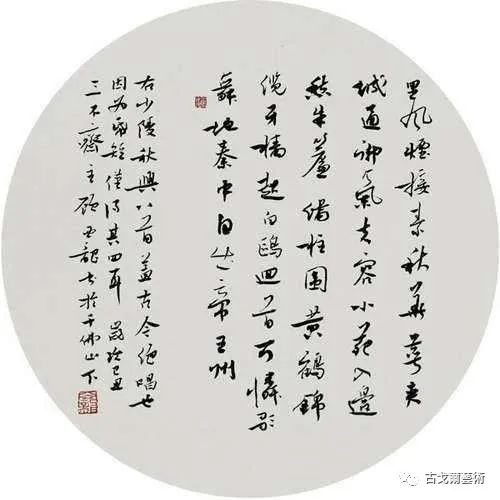 里風煙接素秋華萼夾
城通御氣夫容小苑入邊
愁朱簾繡柱圍黃鶴錦
纜牙檣起白鷗迴首可憐歌
舞地秦中自古帝王州
右少陵秋興八首蓋古今絕唱也
因為短僅得其四耳 歲次己丑
三不齋主顧亞龍書於千佛山下
古戈爾藝術